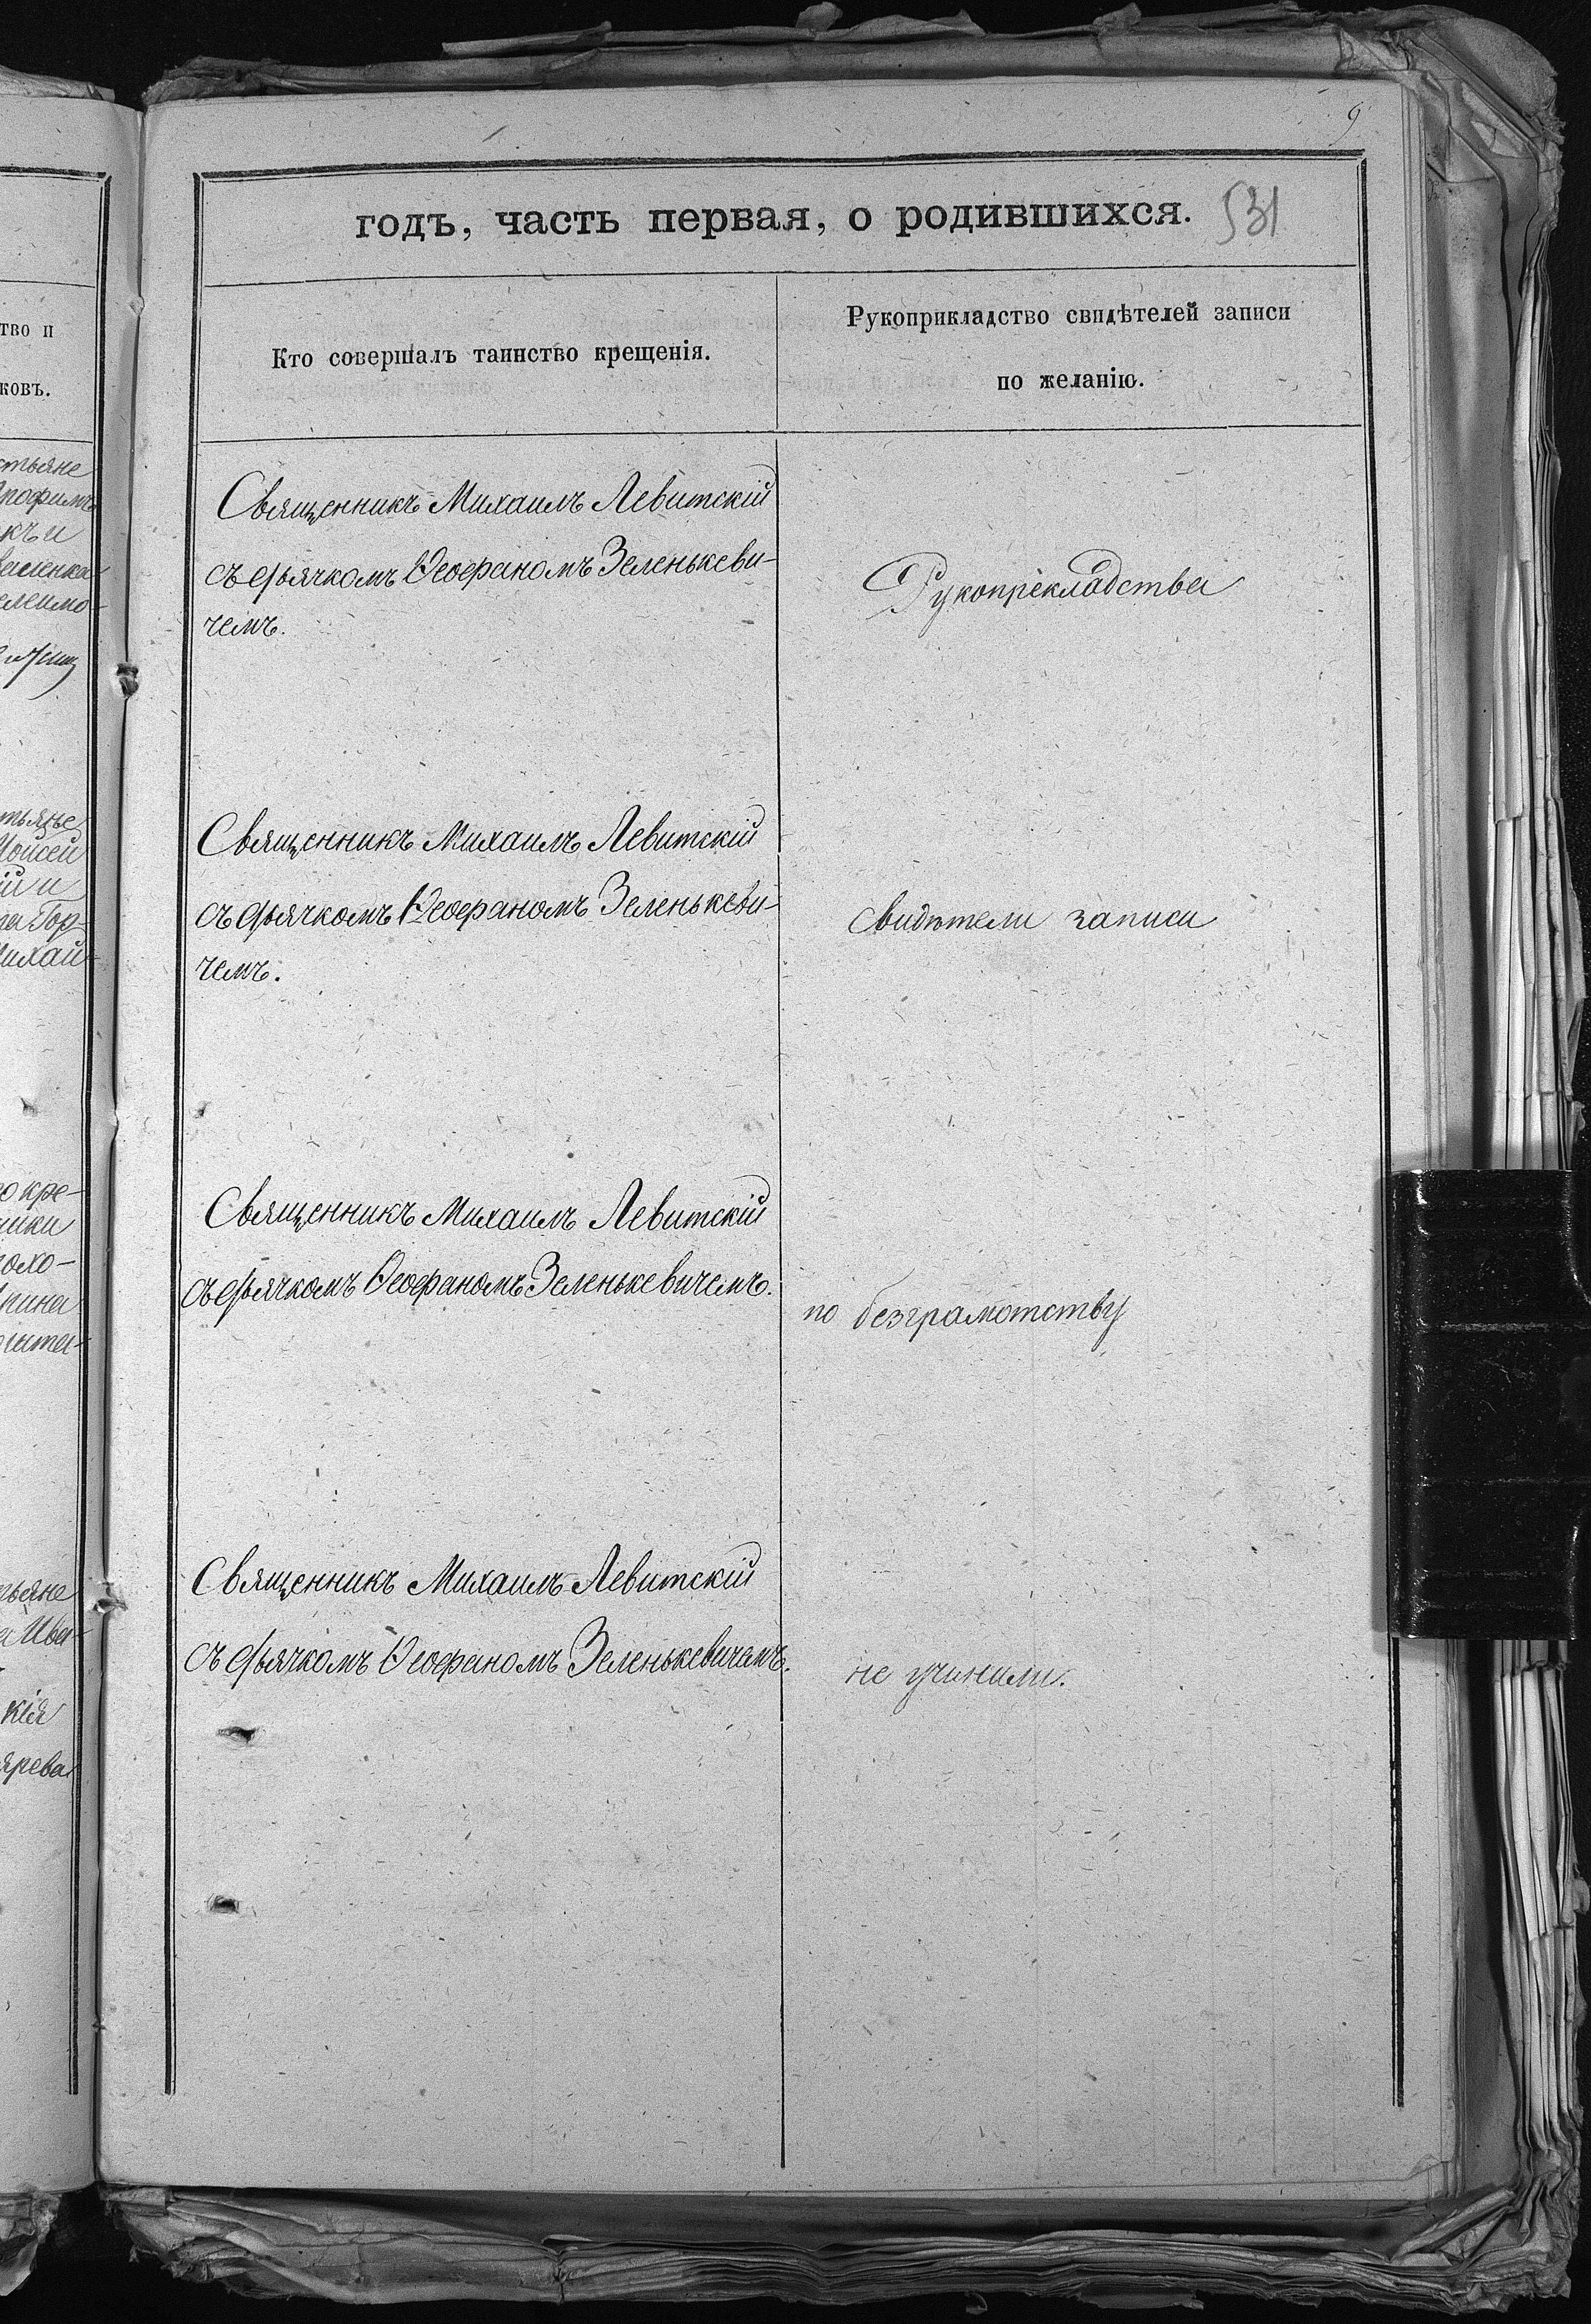 9
годъ, часть первая, о родившихся. 531
Кто совершалъ таинство крещенія.
Рукоприкладство свидѣтелей записи
по желанію.
Священникъ Михаилъ Левитскій
съ дьячкомъ Ѳеофаномъ Зеленькеви-
чемъ.
Рукопрекладства
Священникъ Михаилъ Левитскій
съ дьячкомъ Ѳеофаномъ Зеленькеви
чемъ.
свидѣтели записи
Священникъ Михаилъ Левитскій
съ дьячкомъ Ѳеофаномъ Зеленькевичемъ.
по безграмотству
Священникъ Михаилъ Левитскій
съ дьячкомъ Ѳеофаномъ Зеленькевичемъ.
не учинили.
тво и
ковъ.